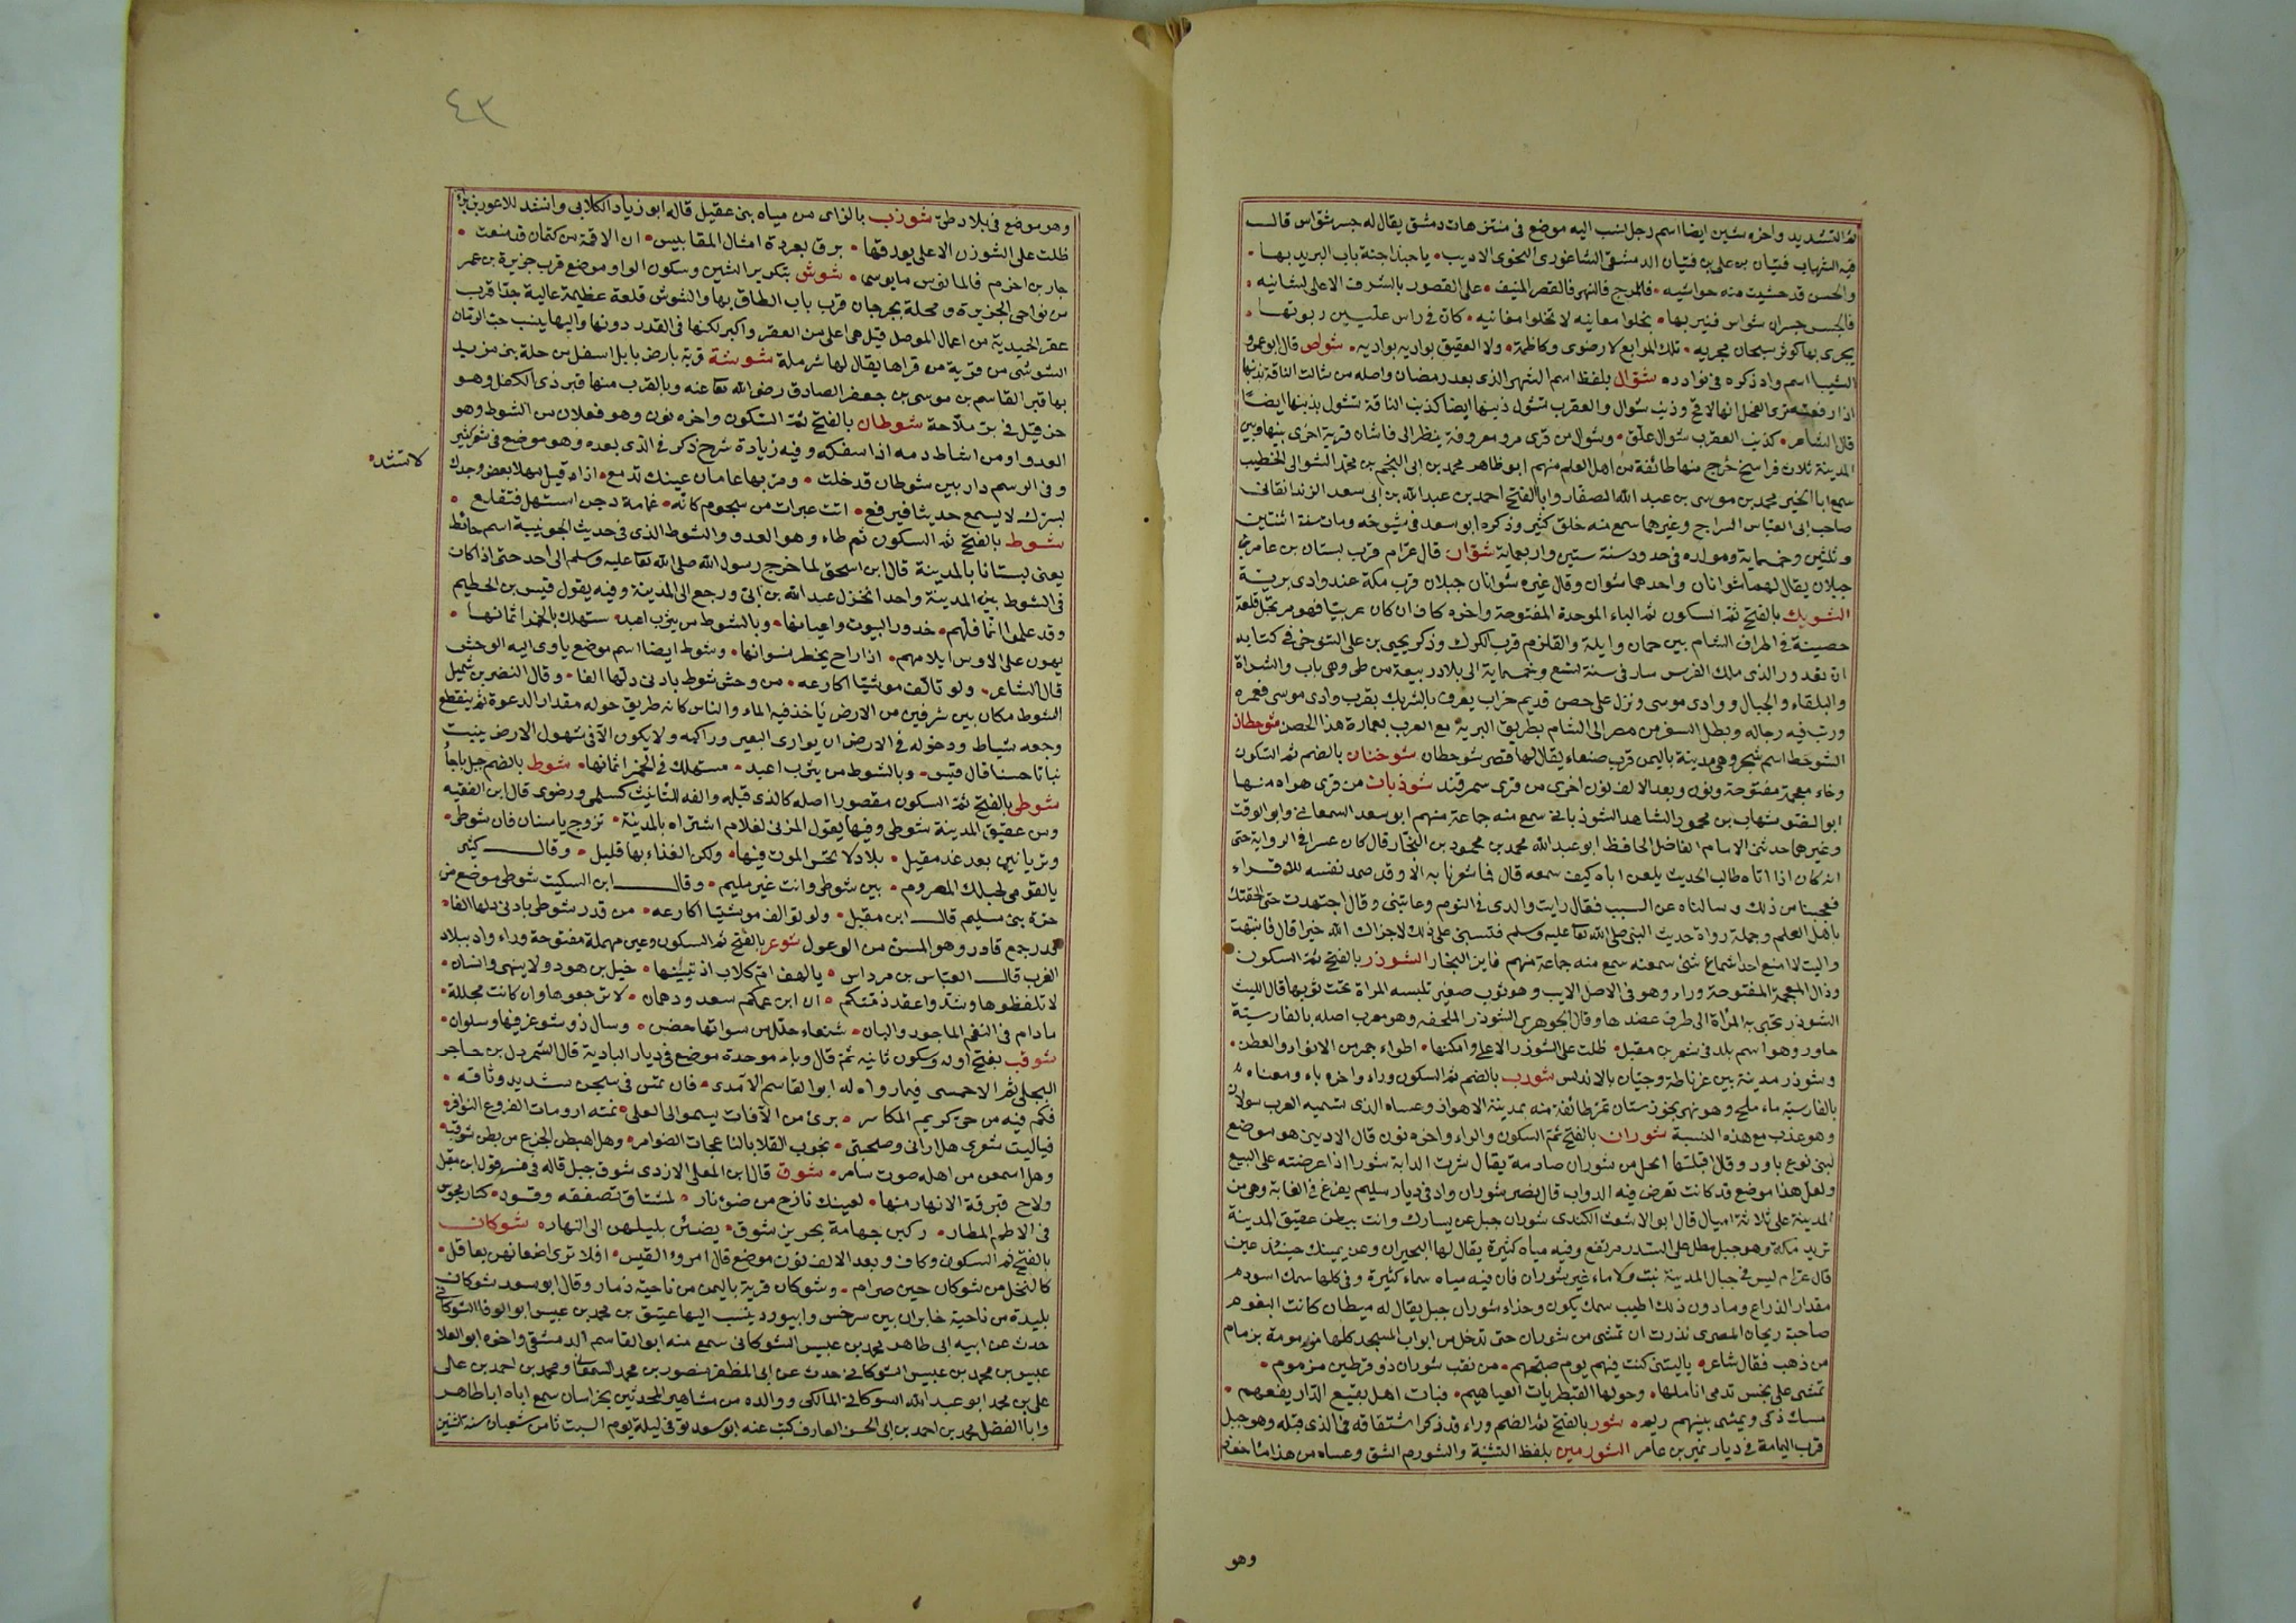 ثم التشديد واخره شين ايضا اسم رجل نسب اليه موضع في منتزهات دمشق يقال له جسر شواس قال
فيه الشهاب فتيان بن على بن فتيان الدمشقى الشاغورى النحوى الاديب يا حبذا جنة باب البريد بها
والحسن قد حشيت منه حواشيه فالمرج فالنهر فالقصر المنيف على القصور بالشرف الاعلى لشانيه
فالجسر جسران شواس فنيربها تخلوا معانيه لا تخلوا مغانيه كان في راس عليين ربوتها
يجرى بها كوثر سبحان مجريه تلك المرابع لا رضوى وكاظمة ولا العقيق بواديه بواديه شواص قال ابو عمرو
الشيبا اسم واد ذكره في نوادره شوال بلفظ اسم الشهر الذى بعد رمضان واصله من شالت الناقة بذنبها
اذا رفعته ترى الفحل انها لاقح وذنب شوال والعقرب تشول ذنبها ايضا كذنب الناقة تشول بذنبها ايضا
قال الشاعر كذنب العقرب شوال علق وشوال من قرى مرو معروفة ينظر الى فاشان قرية اخرى بينها وبين
المدينة ثلاث فراسخ خرج منها طائفة من اهل العلم منهم ابو طاهر محمد بن ابى النجم بن محمد الشوالى الخطيب
سمع ابا الخير محمد بن موسى بن عبد الله الصفار وابا الفتح احمد بن عبد الله بن ابى سعد الزندانقانى
صاحب ابى العباس السراج وغيرهما سمع منه خلق كثير وذكره ابو سعد في شيوخه ومات سنة اثنتين
وثلثين وخمسماية ومولده في حدود سنة ستين واربعماية شوان قال عرام قرب بستان بن عامر
جبلان يقال لهما شوانان واحدهما شوان وقال غيره شوانان جبلان قرب مكة عند وادى تربة
الشوبك بالفتح ثم السكون ثم الباء الموحدة المفتوحة واخره كاف ان كان عربيا فهو مرتجل قلعة
حصينة في اطراف الشام بين عمان وايلة والقلزم قرب الكرك وذكر يحيى بن على التنوخى في كتابه
ان بقدور الذى ملك الفرس سار في سنة تسع وخمسماية الى بلاد ربيعة من طى وهى باب والشراة
والبلقاء والجبال ووادى موسى ونزل على حصن قديم خراب يعرف بالشوبك بقرب وادى موسى فعمره
ورتب فيه رجاله وبطل السفر من مصر الى الشام بطريق البرية مع العرب بعمارة هذا الحصن شوحطان
الشوحط اسم شجر وهى مدينة باليمن قرب صنعاء يقال لها قصر شوحطان شوخنان بالضم ثم السكون
وخاء معجمة مفتوحة ونون وبعد الالف نون اخرى من قرى سمرقند شوذبان من قرى هراه منها
ابو الفتو شهاب بن محمود الشاهد الشوذبانى سمع منه جماعة منهم ابو سعد السمعانى وابو الوقت
وغيرهما حدثنى الامام الفاضل الحافظ ابو عبد الله محمد بن محمود بن النجار قال كان عسرا في الرواية حتى
انه كان اذا اتاه طالب الحديث يلعن اباه كيف سمعه قال فما شعرنا به الا وقد صمد نفسه للاقراء
فعجبنا من ذلك وسالناه عن السبب فقال رايت والدى في النوم وعاتبنى وقال اجتهدت حتى الحقتك
باهل العلم وجملة رواة حديث النبى صلى الله تعا عليه وسلم فتسبنى على ذلك لا جزاك الله خيرا قال فانتبهت
واليت لا امنع احدا سماع شئ سمعته سمع منه جماعة منهم فابن النجار الشوذر بالفتح ثم السكون
وذال المعجمة المفتوحة وراء وهو في الاصل الايب وهو ثوب صغير تلبسه المراة تحت ثوبها قال الليث
الشوذر تختبى به المراة الى طرف عضدها وقال الجوهرى الشوذر الملحفه وهو معرب اصله بالفارسية
جاور وهو اسم بلد في شعر بن مقبل ظلت على الشوذر الاعلى وامكنها اطواء جمر من الارواء والعطن
وشوذر مدينة بين غرناطة وجيان بالاندلس شورب بالضم ثم السكون وراء واخره باء ومعناه
بالفارسية ماء ملح وهو نهر بخوزستان تمر طائفة منه بمدينة الاهواز وعساه الذى تسميه العرب سولان
وهو عذب مع هذه النسبة شوران بالفتح ثم السكون والراء واخره نون قال الاديبى هو موضع
لبنى يربوع باود وقال اقبلتها الحل من شوران صادمة يقال شرت الدابة شورا اذا عرضته على البيع
ولعل هذا موضع قد كانت تعرض فيه الدواب قال نصر شوران واد في ديار سليم يفرغ في الغابة وهى من
المدينة على ثلاثة اميال قال ابو الاشعث الكندى شوران جبل عن يسارك وانت ببطن عقيق المدينة
تريد مكة وهو جبل مطل على السد مرتفع وفيه مياه كثيرة يقال لها البحيران وعن يمينك حينئذ عين
قال عرام ليس في جبال المدينة نبت ولا ماء غير شوران فان فيه مياه سماء كثيرة وفى كلها سمك اسود
مقدار الذراع وما دون ذلك اطيب سمك يكون وحذاء شوران جبل يقال له ميطان كانت البغوم
صاحبة ريحان المصرى نذرت ان تمشى من شوران حتى تدخل من ابواب المسجد كلها مزمومة بزمام
من ذهب فقال شاعر ياليتنى كنت فيهم يوم صبحهم من نقب شوران ذو قرطين مزموم
تمشى على نجس تدمى اناملها وحولها القبطريات العياهيم فبات اهل بقيع الدار يفعمهم
مسك ذكى ويمشى بينهم ريم شور بالفتح ثم الضم وراء قد ذكر اشتقاقه في الذى قبله وهو جبل
قرب اليمامة في ديار نمير بن عامر الشورمين بلفظ التثنية والشورم الشق وعساه من هذا
وهو
٤٣
وهو موضع في بلاد طى شوزب بالزاى من مياه بنى عقيل قاله ابو زياد الكلابى وانشد للاعور بن براء
ظلت على الشوزن الاعلى يورقها برق بعردة امثال المقابيس ان الاقمة من كتمان قد منعت
جار بن اخرم فالمانوس مايوسى شوش بتكرير الشين وسكون الواو موضع قرب جزيرة بن عمر
من نواحى الجزيرة ومحلة بجرجان قرب باب الطاق بها والشوش قلعة عظيمة عالية جدا قرب
عقر الحميدية من اعمال الموصل قيل هى اعلى من العقر واكبر لكنها في القدر دونها واليها ينسب حب الرمان
الشوشى من قرية من قراها يقال لها شرملة شوشة قرية بارض بابل اسفل من حلة بنى مزيد
بها قبر القاسم بن موسى بن جعفر الصادق رضى الله تعا عنه وبالقرب منها قبر ذى الكفل وهو
حزقيل في بر ملاحة شوطان بالفتح ثم السكون واخره نون وهو فعلان من الشوط وهو
العدو او من اشاط دمه اذا سفكه وفيه زيادة شرح ذكر في الذى بعده وهو موضع في شعر كثير
وفى الرسم دار بين شوطان قد خلت ومر بها عامان عينك تدمع اذا قيل مهلا بعض وجدك
لا تشد
بسرك لا يسمع حديث فيرفع اتت عبرات من سجوم كانه غمامة دجن استهل فتقلع
شوط بالفتح ثم السكون ثم طاء وهو العدو والشوط الذى في حديث الجونية اسم حائط
يعنى بستانا بالمدينة قال ابن اسحق لما خرج رسول الله صلى الله تعا عليه وسلم الى احد حتى اذا كان
في الشوط بين المدينة واحد انخزل عبد الله بن ابى ورجع الى المدينة وفيه يقول قيس بن الخطيم
وقد علموا انما فلهم خدور البيوت واعيانها وبالشوط من يثرب اعبد ستهلك بالخمر اثمانها
يهون على الاوس ايلامهم اذا راح يخطر نسوانها وشوط ايضا اسم موضع ياوى اليه الوحش
قال الشاعر ولو تالف موشيا اكارعه من وحش شوط بادنى دلها الفا وقال النضر بن شميل
الشوط مكان بين شرفين من الارض ياخذ فيه الماء والناس كانه طريق طوله مقدار الدعوة ثم ينقطع
وجمعه شياط ودخوله في الارض ان يوارى البعير وراكبه ولا يكون الا في سهول الارض ينبت
نباتا حسنا قال قيس وبالشوط من يثرب اعبد مستهلك في الخمر اثمانها شوط بالضم جبل باجأ
شوطى بالفتح ثم السكون مقصورا اصله كالذى قبله والفه للتانيث كسلمى ورضوى قال ابن الفقيه
ومن عقيق المدينة شوطى وفيها يقول المزنى لغلام اشتراه بالمدينة تزوج يا سنان فان شوطى
وتربانين بعد غد مقيل بلاد لا تحس الموت فيها ولكن الغذاء بها قليل وقال كثير
يالقومى لحبلك المصروم بين شوطى وانت غير مليم وقال ابن السكيت شوطى موضع من
حرة بنى سليم قال ابن مقبل ولو تالف موشيا اكارعه من قدر شوطى بادنى دلها الفا
قدر جمع قادر وهو المسن من الوعول شوعر بالفتح ثم السكون وعين مهملة مفتوحة وراء واد ببلاد
العرب قال العباس بن مرداس يالهف ام كلاب اذ تبيتها خيل بن هود ولا ينهى وانسان
لا تلفظوها وشدوا عقد ذمتكم ان ابن عمكم سعد ودهمان لا ترجعوها وان كانت مجللة
ما دام في النعم الماجود والبان شنعاء جلل من سوآتها حضن وسال ذو شوعر فيها وسلوان
شوقب بفتح اوله وسكون ثانيه ثم قال وباء موحدة موضع في ديار البادية قال الشمردل بن حاجر
البجلى ثم الاحمسى فيما رواه له ابو القاسم الآمدى فان تمس في سجن شديد وثاقه
فكم فيه من حى كريم المكاسر برئ من الآفات يسمو الى العلى نمته ارومات الفروع النوافر
فياليت شعرى هل ارانى وصحبتى نجوب الفلا بالناعجات الضوامر وهل اهبطن الجزع من بطن شوقب
وهل اسمعن من اهله صوت سامر شوق قال ابن المعلى الازدى شوق جبل قاله في تفسر قول ابن مقبل
ولاح ببرقة الانهار منها لعينك نازح من ضوء نار لمشتاق تصفقه وقود كنار مجوس
في الاطم المطار ركبن جهامة بحزيز شوق يضئن بليلهن الى النهار شوكان
بالفتح ثم السكون وكاف وبعد الالف نون موضع قال امرؤ القيس افلا ترى اظعانهن بعاقل
كالنخل من شوكان حين صرام وشوكان قرية باليمن من ناحية ذمار وقال ابو سعد شوكان
بليدة من ناحية خابران بين سرخس وابيورد ينسب اليها عتيق بن محمد بن عبيس ابو الوفا الشوكانى
حدث عن ابيه ابى طاهر محمد بن عبيس الشوكانى سمع منه ابو القاسم الدمشقى واخوه ابو العلا
عبيس بن محمد بن عبيس الشوكانى حدث عن ابى المظفر منصور بن محمد السمعانى ومحمد بن احمد بن على
على بن محمد ابو عبد الله الشوكانى المالكى ووالده من مشاهير المحدثين بخراسان سمع اباه ابا طاهر
وابا الفضل محمد بن احمد بن ابى الحسن العارف كتب عنه ابو سعد توفى ليلة يوم السبت ثامن شعبان سنه ثنتين